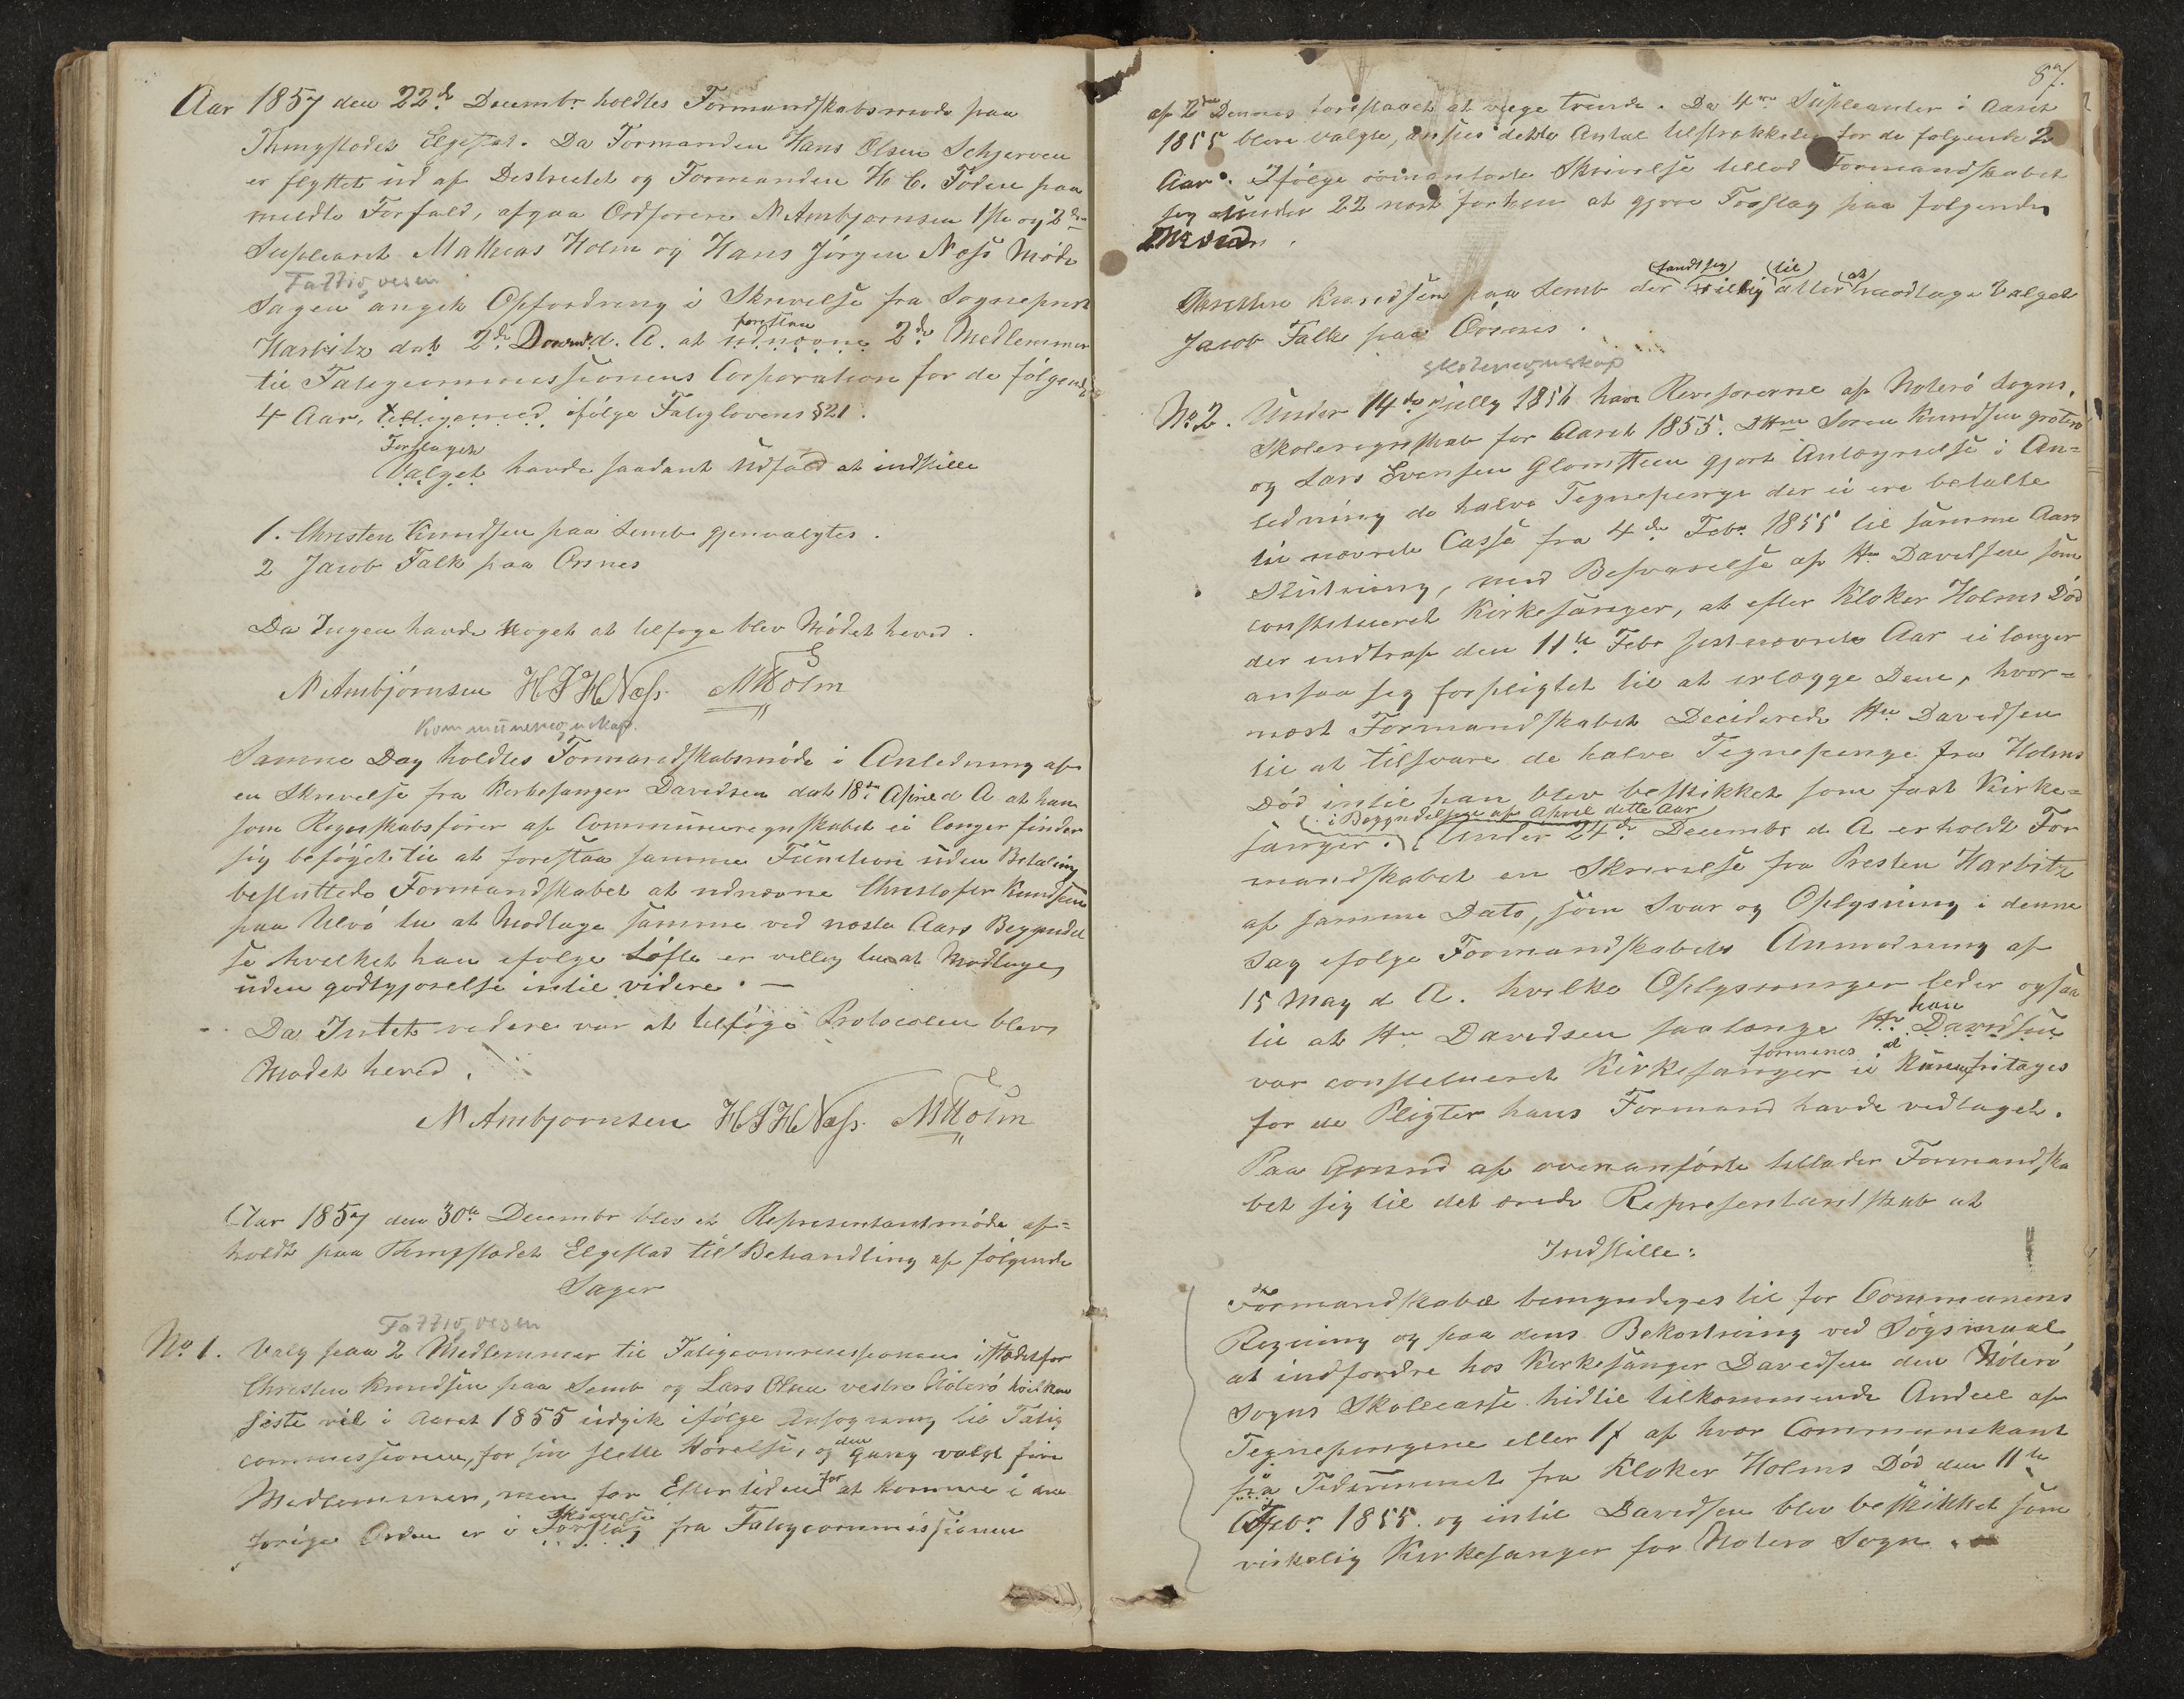 Aar 1857 den 22de Decembr holdtes Formandskabsmøde paa
Thingstedet Elgestad. Da Formanden Hans Olsen Schjerven
er flyttet ud af Destrictet og Formanden H. C. Foden paa
meldte Forfald, afgaa Ordforere N Ambjornsen 1ste og 2den
Supleant Mathias Holm og Hans Jørgen Næss Møde
Fattigvesen
Sagen angik Opfordring i Skrivelse fra Sogneprest
Harbitz dat 2de d. A. at udnævne 2de Medlemmer
forestaa
til Fatigcommissionens Corporation for de følgende
4 Aar, tilligemed ifølge Fatiglovens §21.
Forslaget
Valget havde saadant Udfald at indstille
1. Christen Knudsen paa Semb gjenvalgtes.
2 Jacob Falk paa Orsnes
Da Ingen havde Noget at tilføge blev Mødet heved.
N Ambjörnsen HJHNæss. MHolm
Kommuneregnskap.
Samme Day holdtes Formandskabsmöde i Anledning af
en Skrivelse fra Kirkesanger Davidsen dat 18de April d A at han
som Regnskabsfører af Communeregnskabet ei længer finder
sig beföget til at forestaa samme Function uden Betaling
besluttede Formandskabet at udnævne Christofer Knudsen
paa Ulvö til at Modtage samme ved næste Aars Begyndel
se hvilket han ifølge Löfte er villig til at Modtage
uden godtgjorelse intil videre. —
Da Intet videre var at tilföge Protocolen blev
Mødet heved.
N Ambjornsen HJHNæss. MHolm
Aar 1857 den 30te Decembr blev et Representantmöde af=
holdt paa Thingstedet Elgestad til Behandling af følgende
Sager
Fattigvesen
No 1. Valg paa 2 Medlemmer til Fatigcommissionen istedetfor
Christen Knudsen paa Semb og Lars Olsen vestre Nöterö hvilken
siste vel i Aaret 1855 udgik ifølge Ansøgning til Fatig
commissionen, for sin slette Hørelse, og den Gang valgt fire
Medlemmer, men for Eftertiden for at komme i den
Skrivelse
forige Orden er i Forslag fra Fatigcommissionen
87.
af 2den Dennes forestaaet at vælge Trende. Da 4re Supleanter i Aaret
1855 bleve valgte, ansees dette Antal tilstrækkelig for de følgende 2
Aar. Ifølge ovenanførte Skrivelse tillod Formandskabet
sig under 22 næst forhen at gjøre Forslag paa følgende
Mænd.
fandt sig til at
Christen Knudsen paa Semb der villig atter modtage Valget
Jacob Falk paa Örsnes.
Skoleregnskap
No 2. Under 14de July 1856 have Revisorerne af Noterö Sogns
Skoleregnskab for Aaret 1855. DHrr Soren Knudsen grøterø
og Lars Evensen Glomsteen gjort Antegnelse i An=
ledning de halve Tegnepenge der ei ere betalte
til nævnte Casse fra 4de Febr. 1855 til samme Aars
Slutning, med Besvarelse af Hr Davidsen som
constitueret Kirkesanger, at efter Kloker Holms Död
der indtraf den 11te Febr sistnævnte Aar ei længer
ansaa sig forpligtet til at erlægge Dem, hvor=
næst Formandskabet Deciderede Hr Davidsen
til at tilsvare de halve Tegnepenge fra Holms
Död intil han blev beskikket som fast Kirke=
i Begyndelsen af April dette Aar
sanger. Under 24de Decembr d A erholdt For
mandskabet en Skrivelse fra Presten Harbitz
af samme Dato, som Svar og Oplysning i denne
Sag ifølge Formandskabets Anmodning af
15 May d A. hvilke Oplysninger leder ogsaa
han
til at Hr Davidsen saalænge Hr. Davidsen
formenes at
var constitueret Kirkesanger ei kunne fritages
for de Pligter hans Formand havde vedtaget.
Paa Grund af ovenanförte tillader Formandska
bet sig til det ærede Representantskab at
Indstille:
Formandskabet bemyndiges til for Communens
Regning og paa dens Bekostning ved Søgsmaal
at indfordre hos Kirkesanger Davidsen den Nöterö
Sogns Skolecasse hidtil tilkommende Andeel af
Tegnepengene eller 1 f af hver Communikant
fra Tidsrummet fra Kloker Holms Död den 11te
Febr. 1855. og intil Davidsen blev beskikket som
virkelig Kirkesanger for Noterö Sogn.